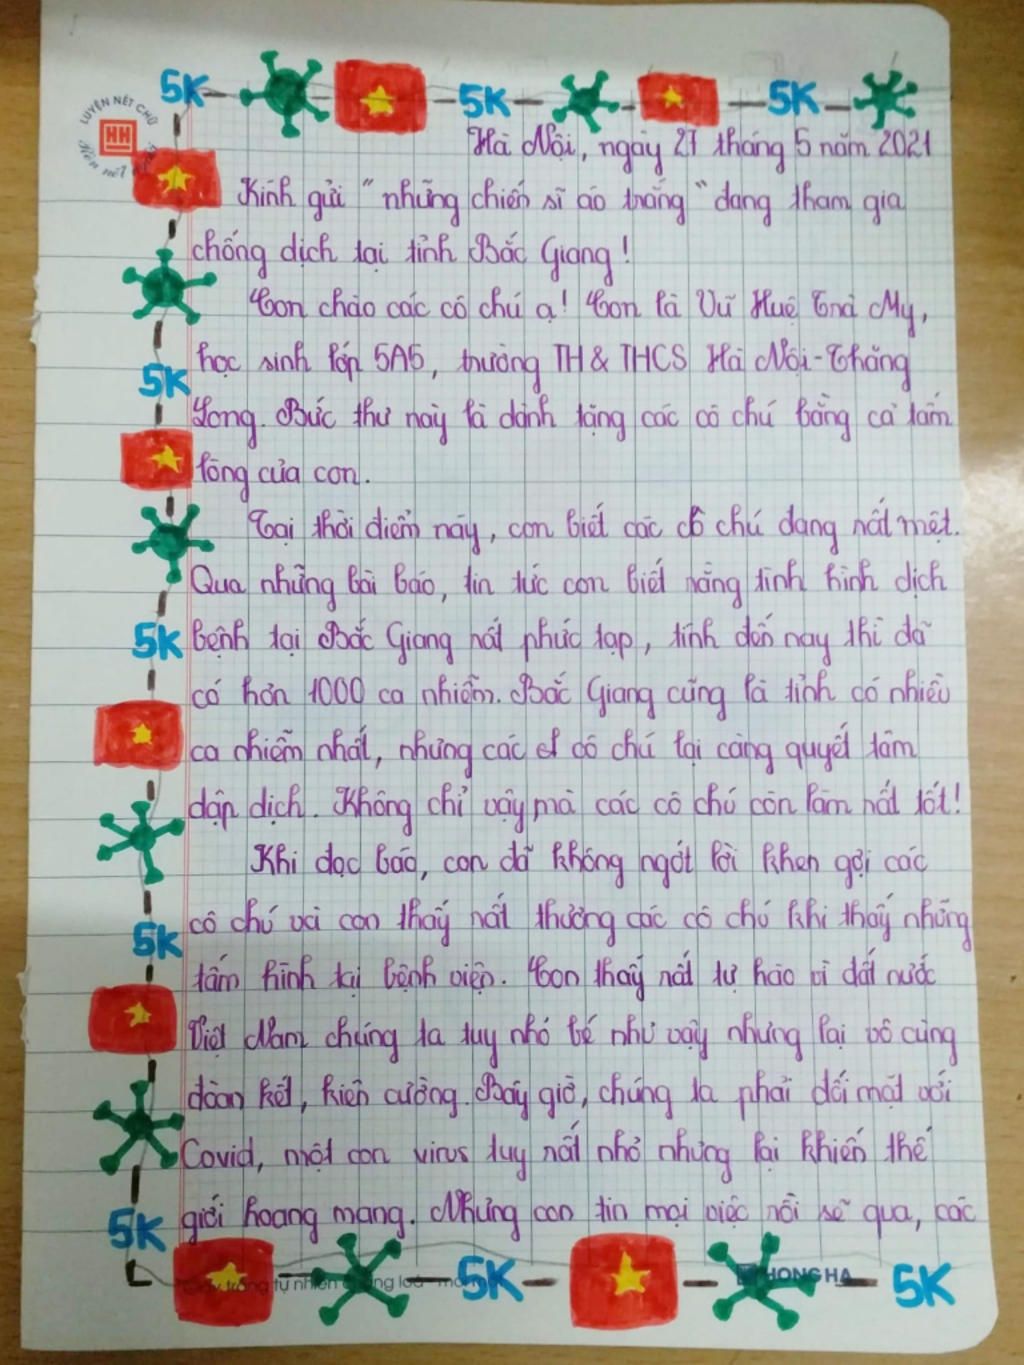 5K 5K 5K
LUYỆN NÉT CHỮ
HH
Rèn nết người
Hà Nội, ngày 27 tháng 5 năm 2021
Kính gửi "những chiến sĩ áo trắng" đang tham gia
chống dịch tại tỉnh Bắc Giang!
Con chào các cô chú ạ! Con là Vũ Huệ Trà My,
học sinh lớp 5A5, trường TH & THCS Hà Nội-Thăng
5K
Long. Bức thư này là dành tặng các cô chú bằng cả tấm
lòng của con.
Tại thời điểm này, con biết các cô chú đang rất mệt.
Qua những bài báo, tin tức con biết rằng tình hình dịch
5K
bệnh tại Bắc Giang rất phức tạp, tính đến nay thì đã
có hơn 1000 ca nhiễm. Bắc Giang cũng là tỉnh có nhiều
ca nhiễm nhất, nhưng các cô chú lại càng quyết tâm
dập dịch. Không chỉ vậy mà các cô chú còn làm rất tốt!
Khi đọc báo, con đã không ngớt lời khen gợi các
cô chú và con thấy rất thương các cô chú khi thấy những
5K
tấm hình tại bệnh viện. Con thấy rất tự hào vì đất nước
Việt Nam chúng ta tuy nhỏ bé như vậy nhưng lại vô cùng
đoàn kết, kiên cường. Bây giờ, chúng ta phải đối mặt với
Covid, một con virus tuy rất nhỏ nhưng lại khiến thế
5K
giới hoang mang. Nhưng con tin mọi việc rồi sẽ qua, các
trắng tự nhiên
5K
HONG HA
5K